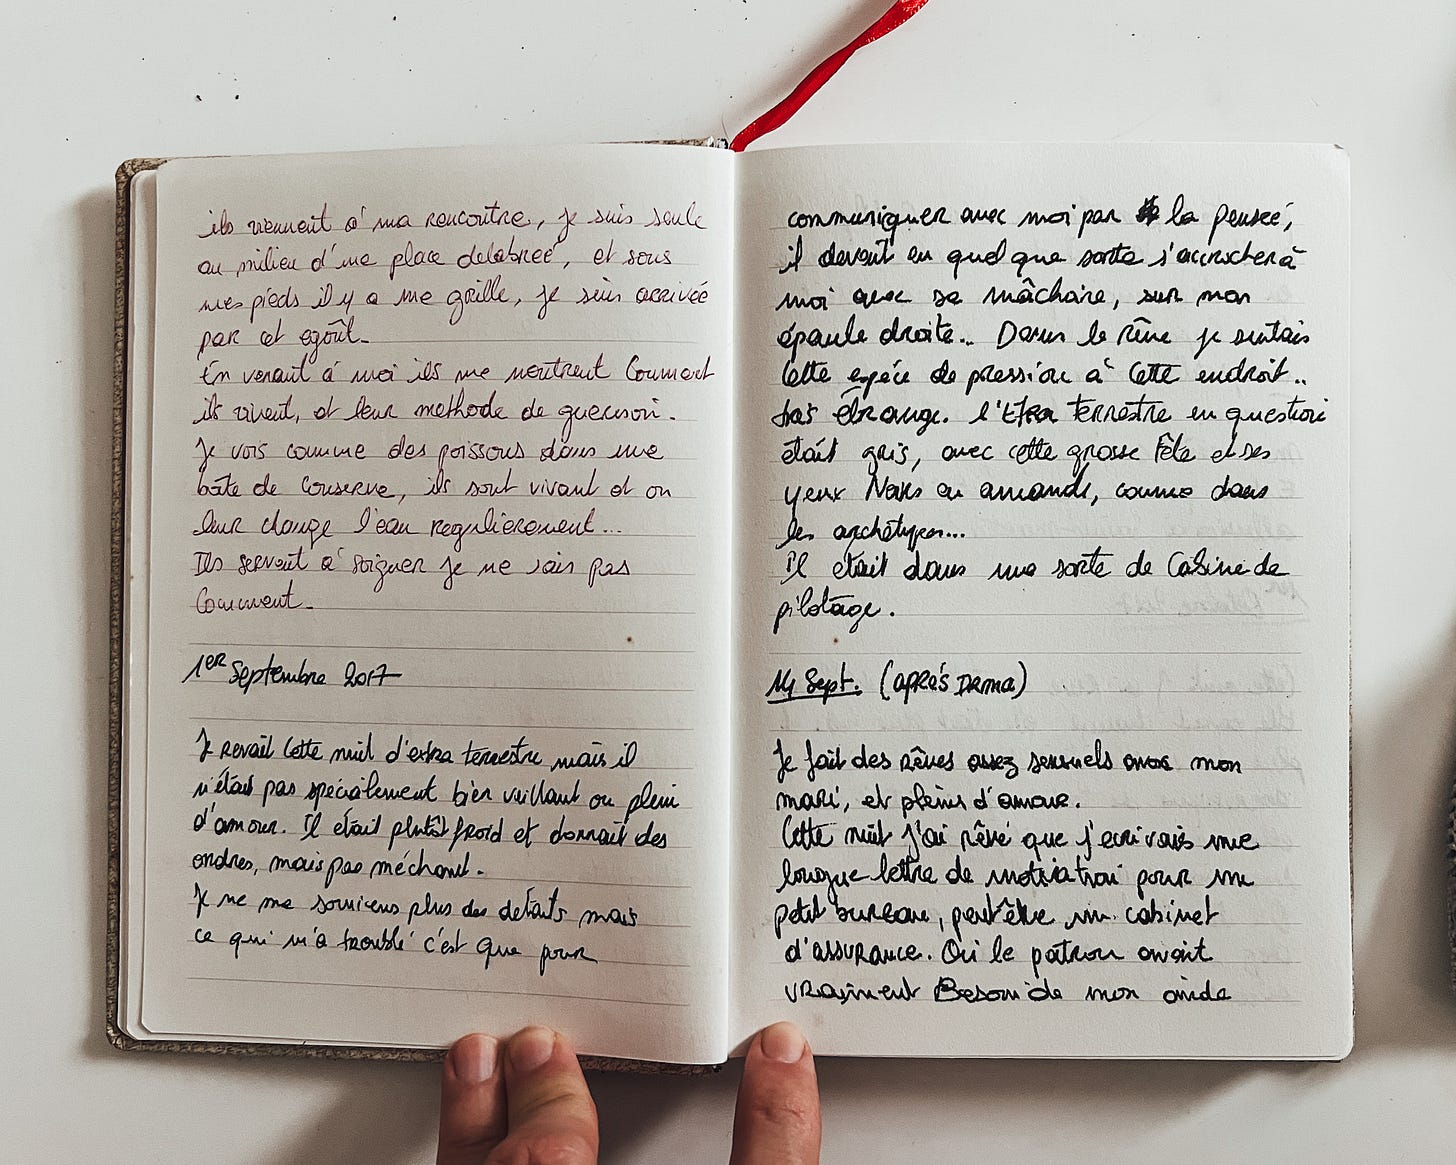 ils viennent à ma rencontre, je suis seule
au milieu d'une place delabreé, et sous
mes pieds il y a une grille, je suis arrivée
par cet egoût.
En venant à moi ils me montrent Comment
ils vivent, et leur methode de guerison.
Je vois comme des poissons dans une
boîte de Conserve, ils sont vivant et on
leur change l'eau regulierement...
Ils servent à soigner je ne sais pas
Comment.
1er Septembre 2017
Je revait cette nuit d'extra terrestre mais il
n'était pas spécialement bien veillant ou plein
d'amour. Il etait plutôt froid et donnait des
ordres, mais pas méchant.
Je ne me souviens plus des details mais
ce qui m'a troublé c'est que pour
communiquer avec moi par la penseé,
il devait en quel que sorte s'accrocher à
moi avec sa mâchoire, sur mon
épaule droite... Dans le rêve je sentais
Cette espéce de pression à Cette endroit..
tres étrange. l'Extra Terrestre en question
était gris, avec cette grosse Tête et ses
yeux Noirs en amande, comme dans
les archétypes...
Il etait dans une sorte de Cabine de
pilotage.
14 Sept. (après DRMA)
Je fait des rêves assez sensuels avec mon
mari, et pleins d'amour.
Cette nuit j'ai rêvé que j'ecrivais une
longue lettre de motivation pour un
petit bureau, peut être un cabinet
d'assurance. Où le patron avait
vraiment Besoin de mon aide